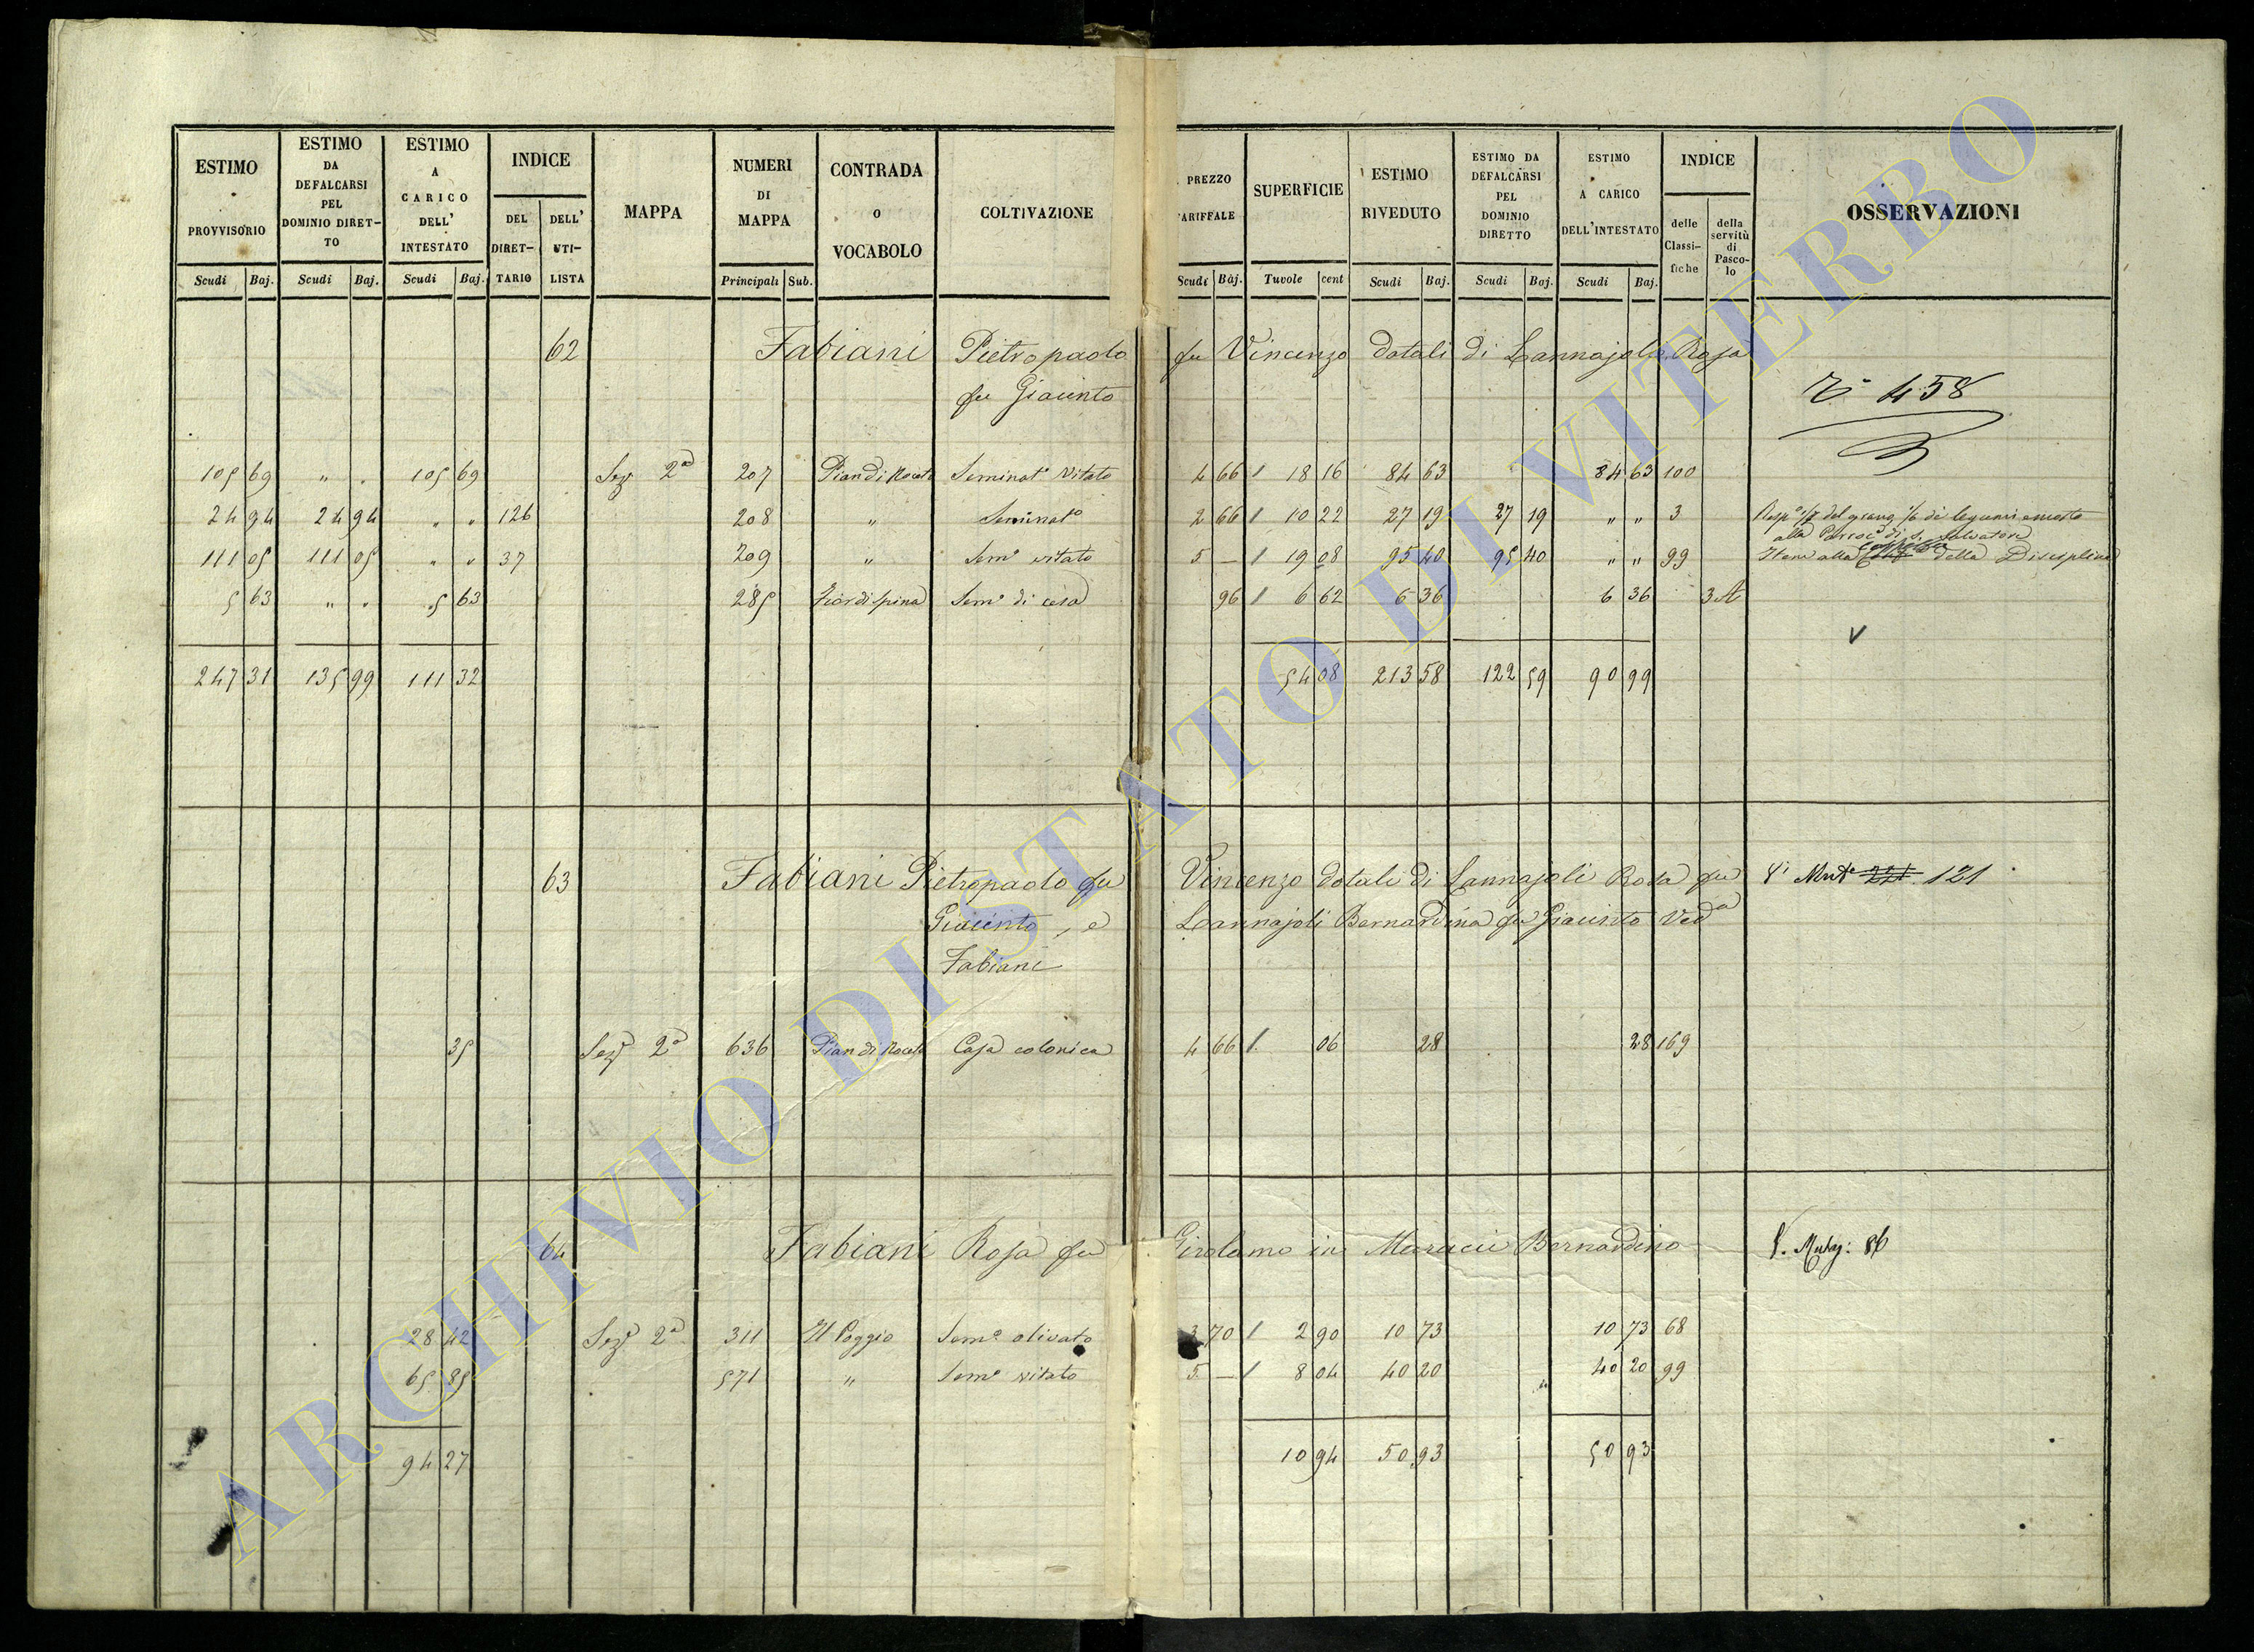 ESTIMO PROVVISORIO | ESTIMO DA DEFALCARSI PEL DOMINIO DIRET-TO | ESTIMO A CARICO DELL' INTESTATO | INDICE | MAPPA | NUMERI DI MAPPA | CONTRADA O VOCABOLO | COLTIVAZIONE | PREZZO TARIFFALE | SUPERFICIE | ESTIMO RIVEDUTO | ESTIMO DA DEFALCARSI PEL DOMINIO DIRETTO | ESTIMO A CARICO DELL'INTESTATO | INDICE | OSSERVAZIONI
DEL DIRET-TARIO | DELL' UTI-LISTA | delle Classi-fiche | della servitù di Pasco-lo
Scudi | Baj. | Scudi | Baj. | Scudi | Baj. | Principali | Sub. | Scudi | Baj. | Tavole | cent | Scudi | Baj. | Scudi | Baj. | Scudi | Baj.
62 Fabiani Pietropaolo fu Vincenzo dotali di Lannajoli Rosa
fu Giacinto
458
105 69 " " 105 69 Sez. 2a 207 Pian di Roceto Seminato Vitato 4 66 1 18 16 84 63 84 63 100
24 94 24 94 " " 126 208 " Seminato 2 66 1 10 22 27 19 27 19 " " 3 Resp. 1/7 del grano, 1/6 di legumi
alla Parroc. di S. Salvatore
111 05 111 05 " " 37 209 " Semo vitato 5 — 1 19 08 95 40 95 40 " " 99 Item alla Cappella della Disciplina
5 63 " " 5 63 285 Fiordispina Semo di cesa 96 1 6 62 6 36 6 36 3A
V
247 31 135 99 111 32 54 08 213 58 122 59 90 99
63 Fabiani Pietropaolo fu Vincenzo dotali di Lannajoli Rosa fu 121
Giacinto, e Lannajoli Bernardina fu Giacinto Veda
Fabiani
35 Seze 2a 636 Pian di Roceto Casa colonica 4 66 1 06 28 28 169
64 Fabiani Rosa fu Girolamo in Maracci Bernardino V. Mutaz: 86
28 42 Seze 2a 311 Il Poggio Semo olivato 3 70 1 2 90 10 73 10 73 68
65 85 571 " Semo vitato 5 — 1 8 04 40 20 40 20 99
94 27 10 94 50 93 50 93
ARCHIVIO DI STATO DI VITERBO